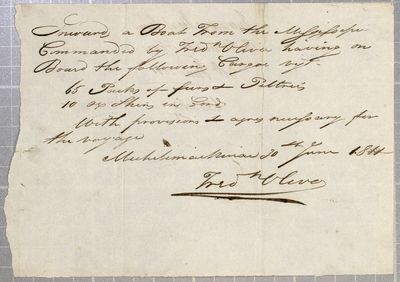 Inward a Boat From the Mississipe
Commanded by Fredk Oliva having on
Board the following Cargoe viz
65 Packs of furs & Peltries
10 ox Skins in
With provisions & agres necessary for
the voyage
Michilimackinac 30th June
Fredk Oliva